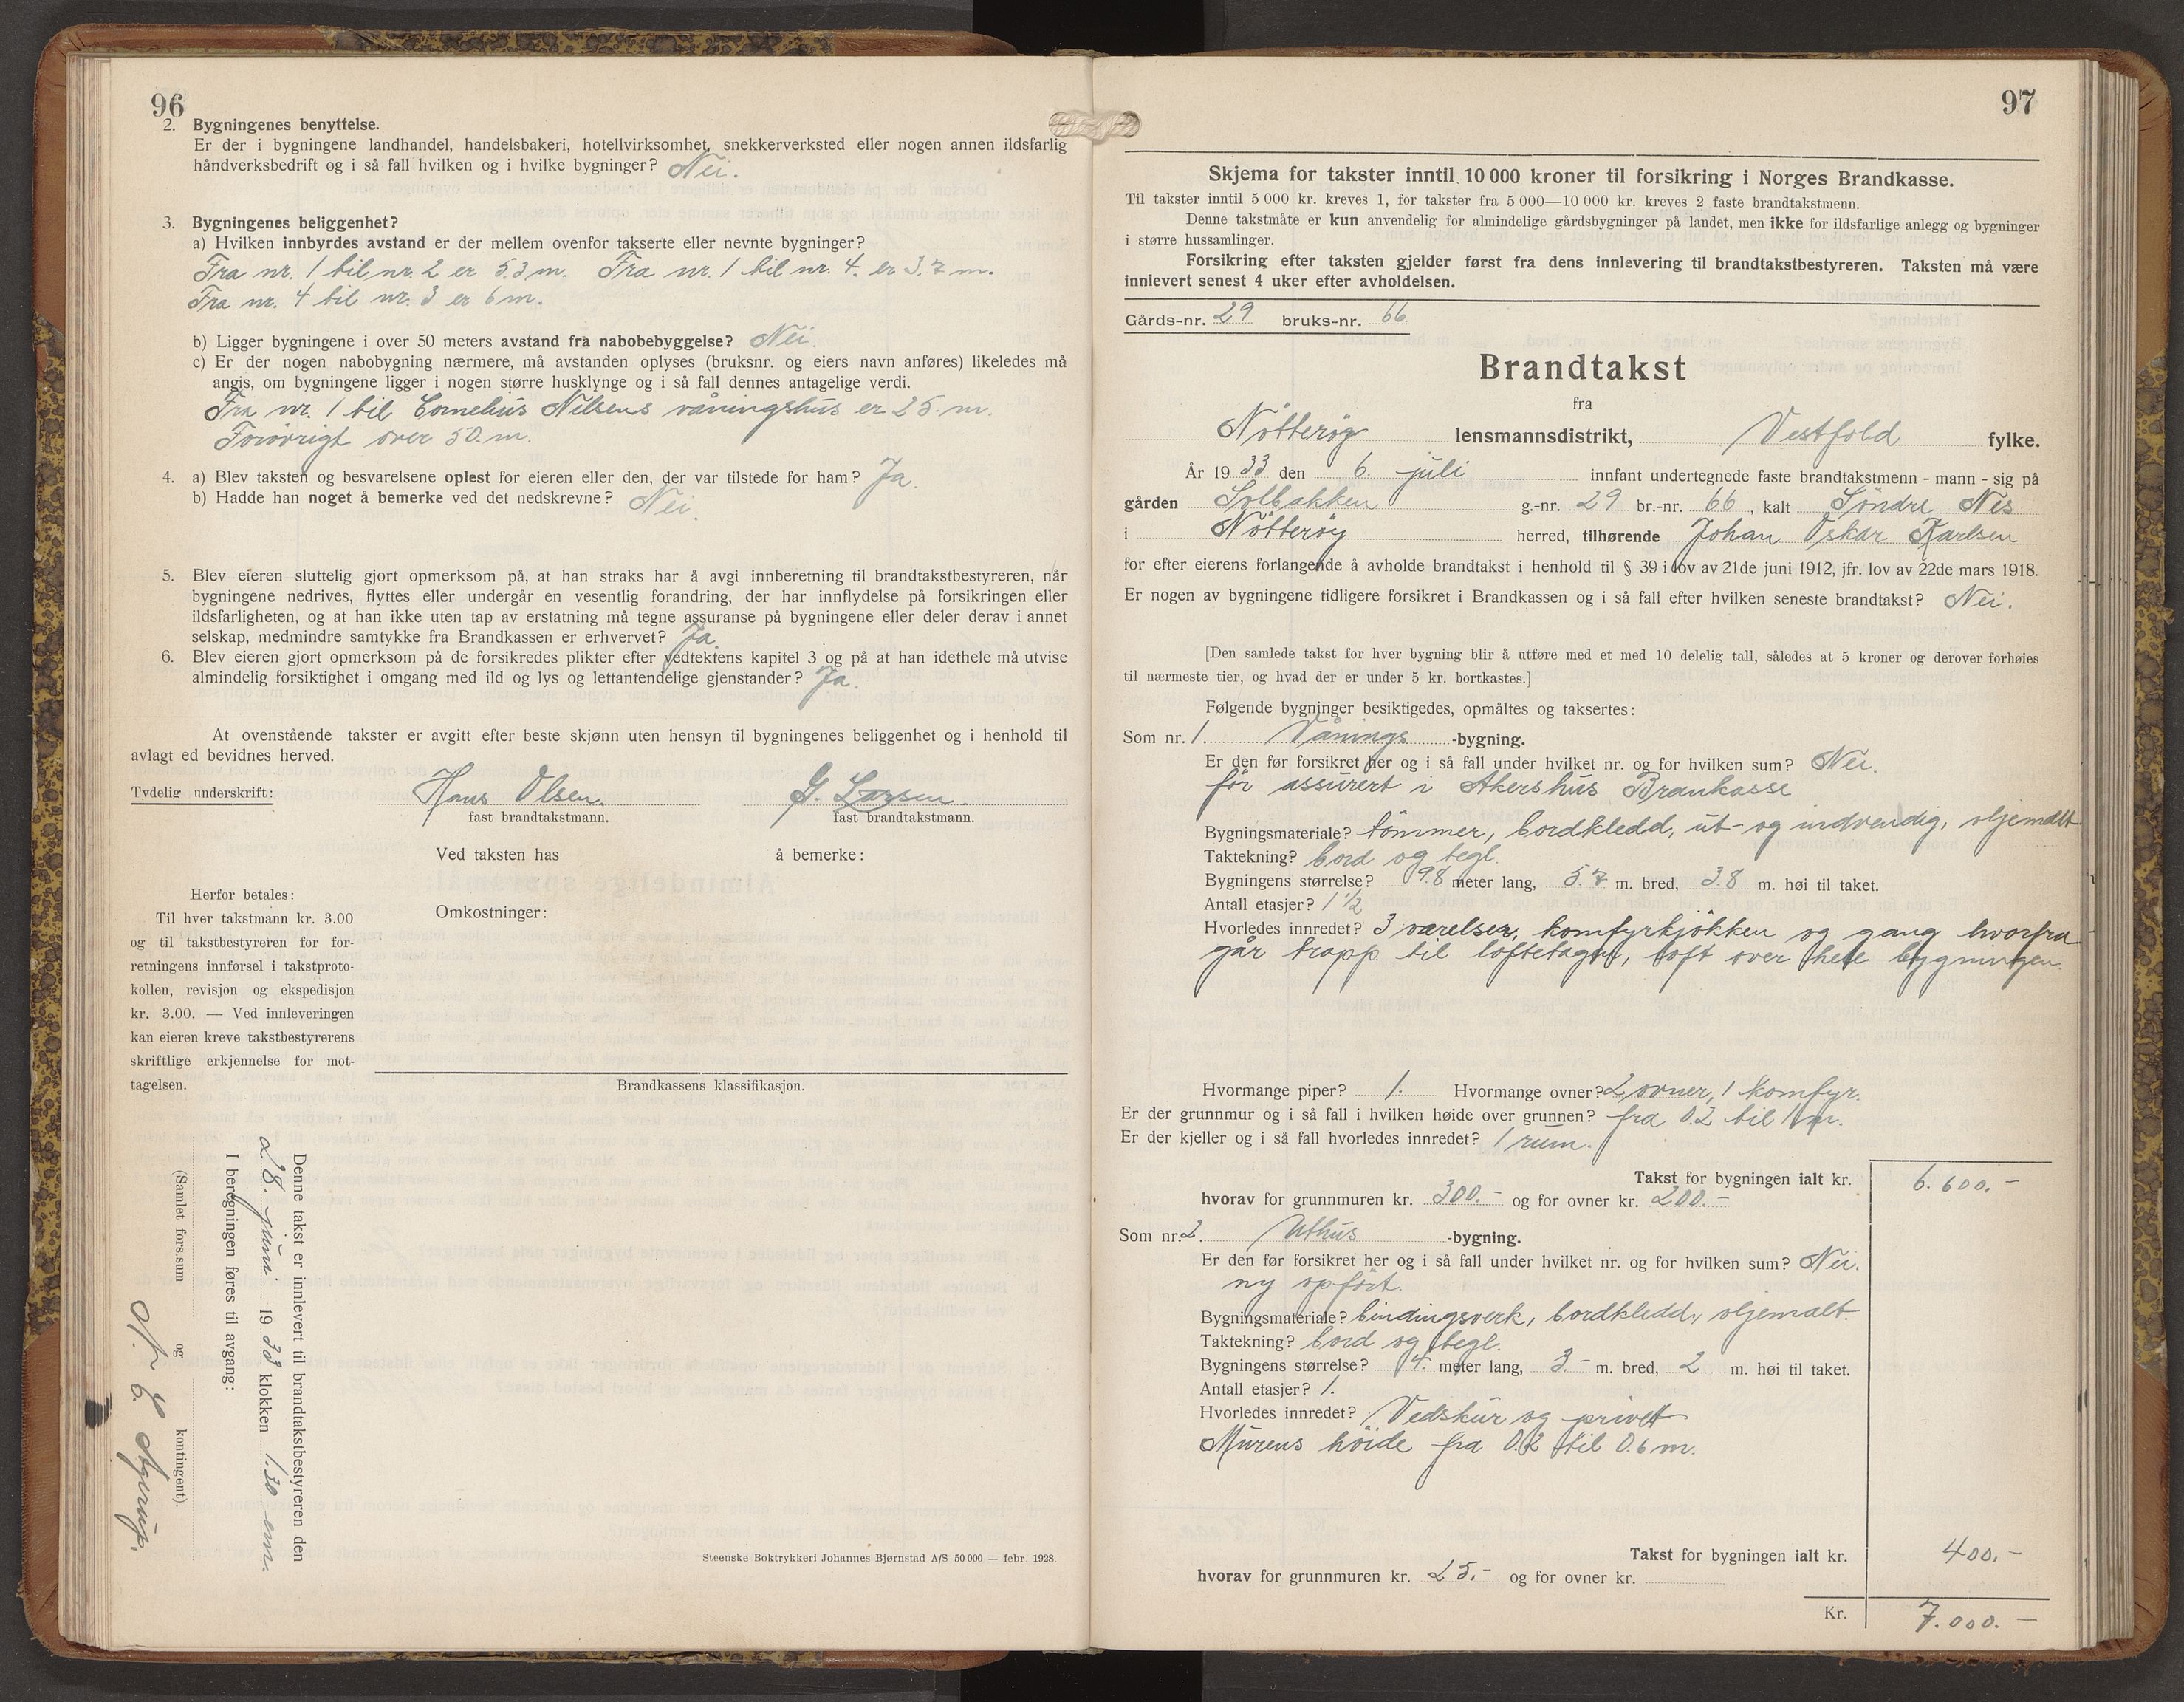 96
2. Bygningenes benyttelse.
Er der i bygningene landhandel, handelsbakeri, hotellvirksomhet, snekkerverksted eller nogen annen ildsfarlig
håndverksbedrift og i så fall hvilken og i hvilke bygninger? Nei.
3. Bygningenes beliggenhet?
a) Hvilken innbyrdes avstand er der mellem ovenfor takserte eller nevnte bygninger?
Fra nr. 1 til nr. 2 er 5.3 m. Fra nr. 1 til nr. 4. er 3.7 m.
Fra nr. 4 til nr. 3 er 6 m.
b) Ligger bygningene i over 50 meters avstand fra nabobebyggelse? Nei.
c) Er der nogen nabobygning nærmere, må avstanden oplyses (bruksnr. og eiers navn anføres) likeledes må
angis, om bygningene ligger i nogen større husklynge og i så fall dennes antagelige verdi.
Fra nr. 1 til Cornelius Nilsens våningshus er 25. m.
Forøvrigt over 50. m.
4. a) Blev taksten og besvarelsene oplest for eieren eller den, der var tilstede for ham? Ja.
b) Hadde han noget å bemerke ved det nedskrevne? Nei.
5. Blev eieren sluttelig gjort opmerksom på, at han straks har å avgi innberetning til brandtakstbestyreren, når
bygningene nedrives, flyttes eller undergår en vesentlig forandring, der har innflydelse på forsikringen eller
ildsfarligheten, og at han ikke uten tap av erstatning må tegne assuranse på bygningene eller deler derav i annet
selskap, medmindre samtykke fra Brandkassen er erhvervet? Ja.
6. Blev eieren gjort opmerksom på de forsikredes plikter efter vedtektens kapitel 3 og på at han idethele må utvise
almindelig forsiktighet i omgang med ild og lys og lettantendelige gjenstander? Ja.
At ovenstående takster er avgitt efter beste skjønn uten hensyn til bygningenes beliggenhet og i henhold til
avlagt ed bevidnes herved.
Tydelig underskrift: Hans Olsen. G. Larsen.
fast brandtakstmann. fast brandtakstmann.
Ved taksten has å bemerke:
Omkostninger:
Herfor betales:
Til hver takstmann kr. 3.00
og til takstbestyreren for for-
retningens innførsel i takstproto-
kollen, revisjon og ekspedisjon
kr. 3.00. — Ved innleveringen
kan eieren kreve takstbestyrerens
skriftlige erkjennelse for mot-
tagelsen.
Brandkassens klassifikasjon.
Denne takst er innlevert til brandtakstbestyreren den
28. juni 1933 klokken 1.30 em
I beregningen føres til avgang:
(Samlet fors.sum og kontingent).
Steenske Boktrykkeri Johannes Bjørnstad A/S 50 000 — febr. 1928.
97
Skjema for takster inntil 10 000 kroner til forsikring i Norges Brandkasse.
Til takster inntil 5 000 kr. kreves 1, for takster fra 5 000—10 000 kr. kreves 2 faste brandtakstmenn.
Denne takstmåte er kun anvendelig for almindelige gårdsbygninger på landet, men ikke for ildsfarlige anlegg og bygninger
i større hussamlinger.
Forsikring efter taksten gjelder først fra dens innlevering til brandtakstbestyreren. Taksten må være
innlevert senest 4 uker efter avholdelsen.
Gårds-nr. 29 bruks-nr. 66.
Brandtakst
fra
Nøtterøy lensmannsdistrikt, Vestfold fylke.
År 1933 den 6. juli innfant undertegnede faste brandtakstmenn - mann - sig på
gården Solbakken g.-nr. 29 br.-nr. 66, kalt Søndre Nes
i Nøtterøy herred, tilhørende Johan Oskar Karlsen
for efter eierens forlangende å avholde brandtakst i henhold til § 39 i lov av 21de juni 1912, jfr. lov av 22de mars 1918.
Er nogen av bygningene tidligere forsikret i Brandkassen og i så fall efter hvilken seneste brandtakst? Nei.
[Den samlede takst for hver bygning blir å utføre med et med 10 delelig tall, således at 5 kroner og derover forhøies
til nærmeste tier, og hvad der er under 5 kr. bortkastes.]
Følgende bygninger besiktigedes, opmåltes og taksertes:
Som nr. 1. Vånings -bygning.
Er den før forsikret her og i så fall under hvilket nr. og for hvilken sum? Nei.
før assurert i Akershus Brankasse
Bygningsmateriale? tømmer, bordkledd, ut- og indvendig, oljemalt
Taktekning? bord og tegl.
Bygningens størrelse? 9.8 meter lang, 5.7 m. bred, 3.8 m. høi til taket.
Antall etasjer? 1 ½
Hvorledes innredet? 3 værelser, komfyrkjøkken og gang hvorfra
går trapp. til loftetagen, loft over hele bygningen.
Hvormange piper? 1. Hvormange ovner? 2 ovner, 1 komfyr.
Er der grunnmur og i så fall i hvilken høide over grunnen? fra 0.2 til 1 m.
Er der kjeller og i så fall hvorledes innredet? 1 rum.
Takst for bygningen ialt kr. 6.600.-
hvorav for grunnmuren kr. 300.- og for ovner kr. 200.-
Som nr. 2. Uthus -bygning.
Er den før forsikret her og i så fall under hvilket nr. og for hvilken sum? Nei.
ny opført.
Bygningsmateriale? bindingsverk, bordkledd, oljemalt.
Taktekning? bord og tegl.
Bygningens størrelse? 4.- meter lang, 3.- m. bred, 2 m. høi til taket.
Antall etasjer? 1.
Hvorledes innredet? Vedskur og privet
Murens høide fra 0.2 til 0.6 m.
Takst for bygningen ialt kr. 400.-
hvorav for grunnmuren kr. 25.- og for ovner kr.
Kr. 7.000.-